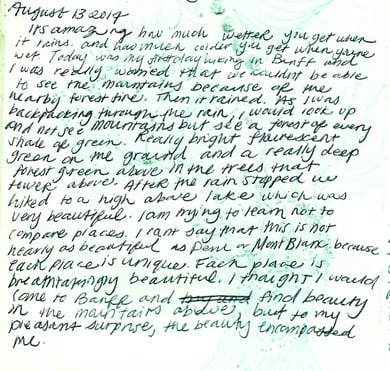 August 13 2014
Its amazing how much wetter you get when
it rains. and how much colder you get when you're
wet. Today was my first day hiking in Banff and
I was really worried that we wouldnt be able
to see the mountains because of the
nearby forest fire. Then it rained. As I was
backpacking through the rain, I would look up
and not see mountains but see a forest of every
shade of green. Really bright flurescent
green on the ground and a really deep
forest green above in the trees that
tower above. After the rain stopped we
hiked to a high above lake which was
very beautiful. I am trying to learn not to
compare places. I cant say that this is not
nearly as beautiful as Peru or Mont Blanc because
each place is unique. Each place is
breathtakingly beautiful. I thought I would
come to Banff and find beauty
in the mountains above, but to my
pleasant surprise, the beauty encompassed
me.